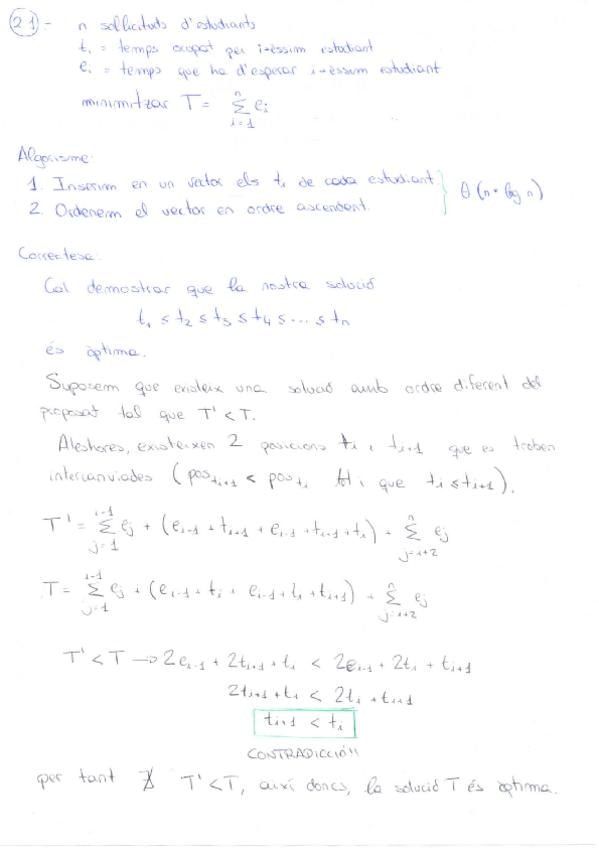 21 - n sol·licituds d'estudiants
ti = temps ocupat per i-èssim estudiant
ei = temps que ha d'esperar i-èssim estudiant
minimitzar T = Σ_{i=1}^{n} ei
Algorisme:
1. Inserim en un vector els ti de cada estudiant.
2. Ordenem el vector en ordre ascendent. } Θ(n·log n)
Correctesa:
Cal demostrar que la nostra solució
t1 ≤ t2 ≤ t3 ≤ t4 ≤ ... ≤ tn
és òptima.
Suposem que existeix una solució amb ordre diferent del
proposat tal que T' < T.
Aleshores, existeixen 2 posicions ti i ti+1 que es troben
intercanviades (pos_{ti+1} < pos_{ti} tot i que ti ≤ ti+1).
T' = Σ_{j=1}^{i-1} ej + (ei-1 + ti+1 + ei-1 + ti+1 + ti) + Σ_{j=i+2}^{n} ej
T = Σ_{j=1}^{i-1} ej + (ei-1 + ti + ei-1 + ti + ti+1) + Σ_{j=i+2}^{n} ej
T' < T → 2ei-1 + 2ti+1 + ti < 2ei-1 + 2ti + ti+1
2ti+1 + ti < 2ti + ti+1
ti+1 < ti
CONTRADICCIÓ!!
per tant ∄ T' < T, així doncs, la solució T és òptima.